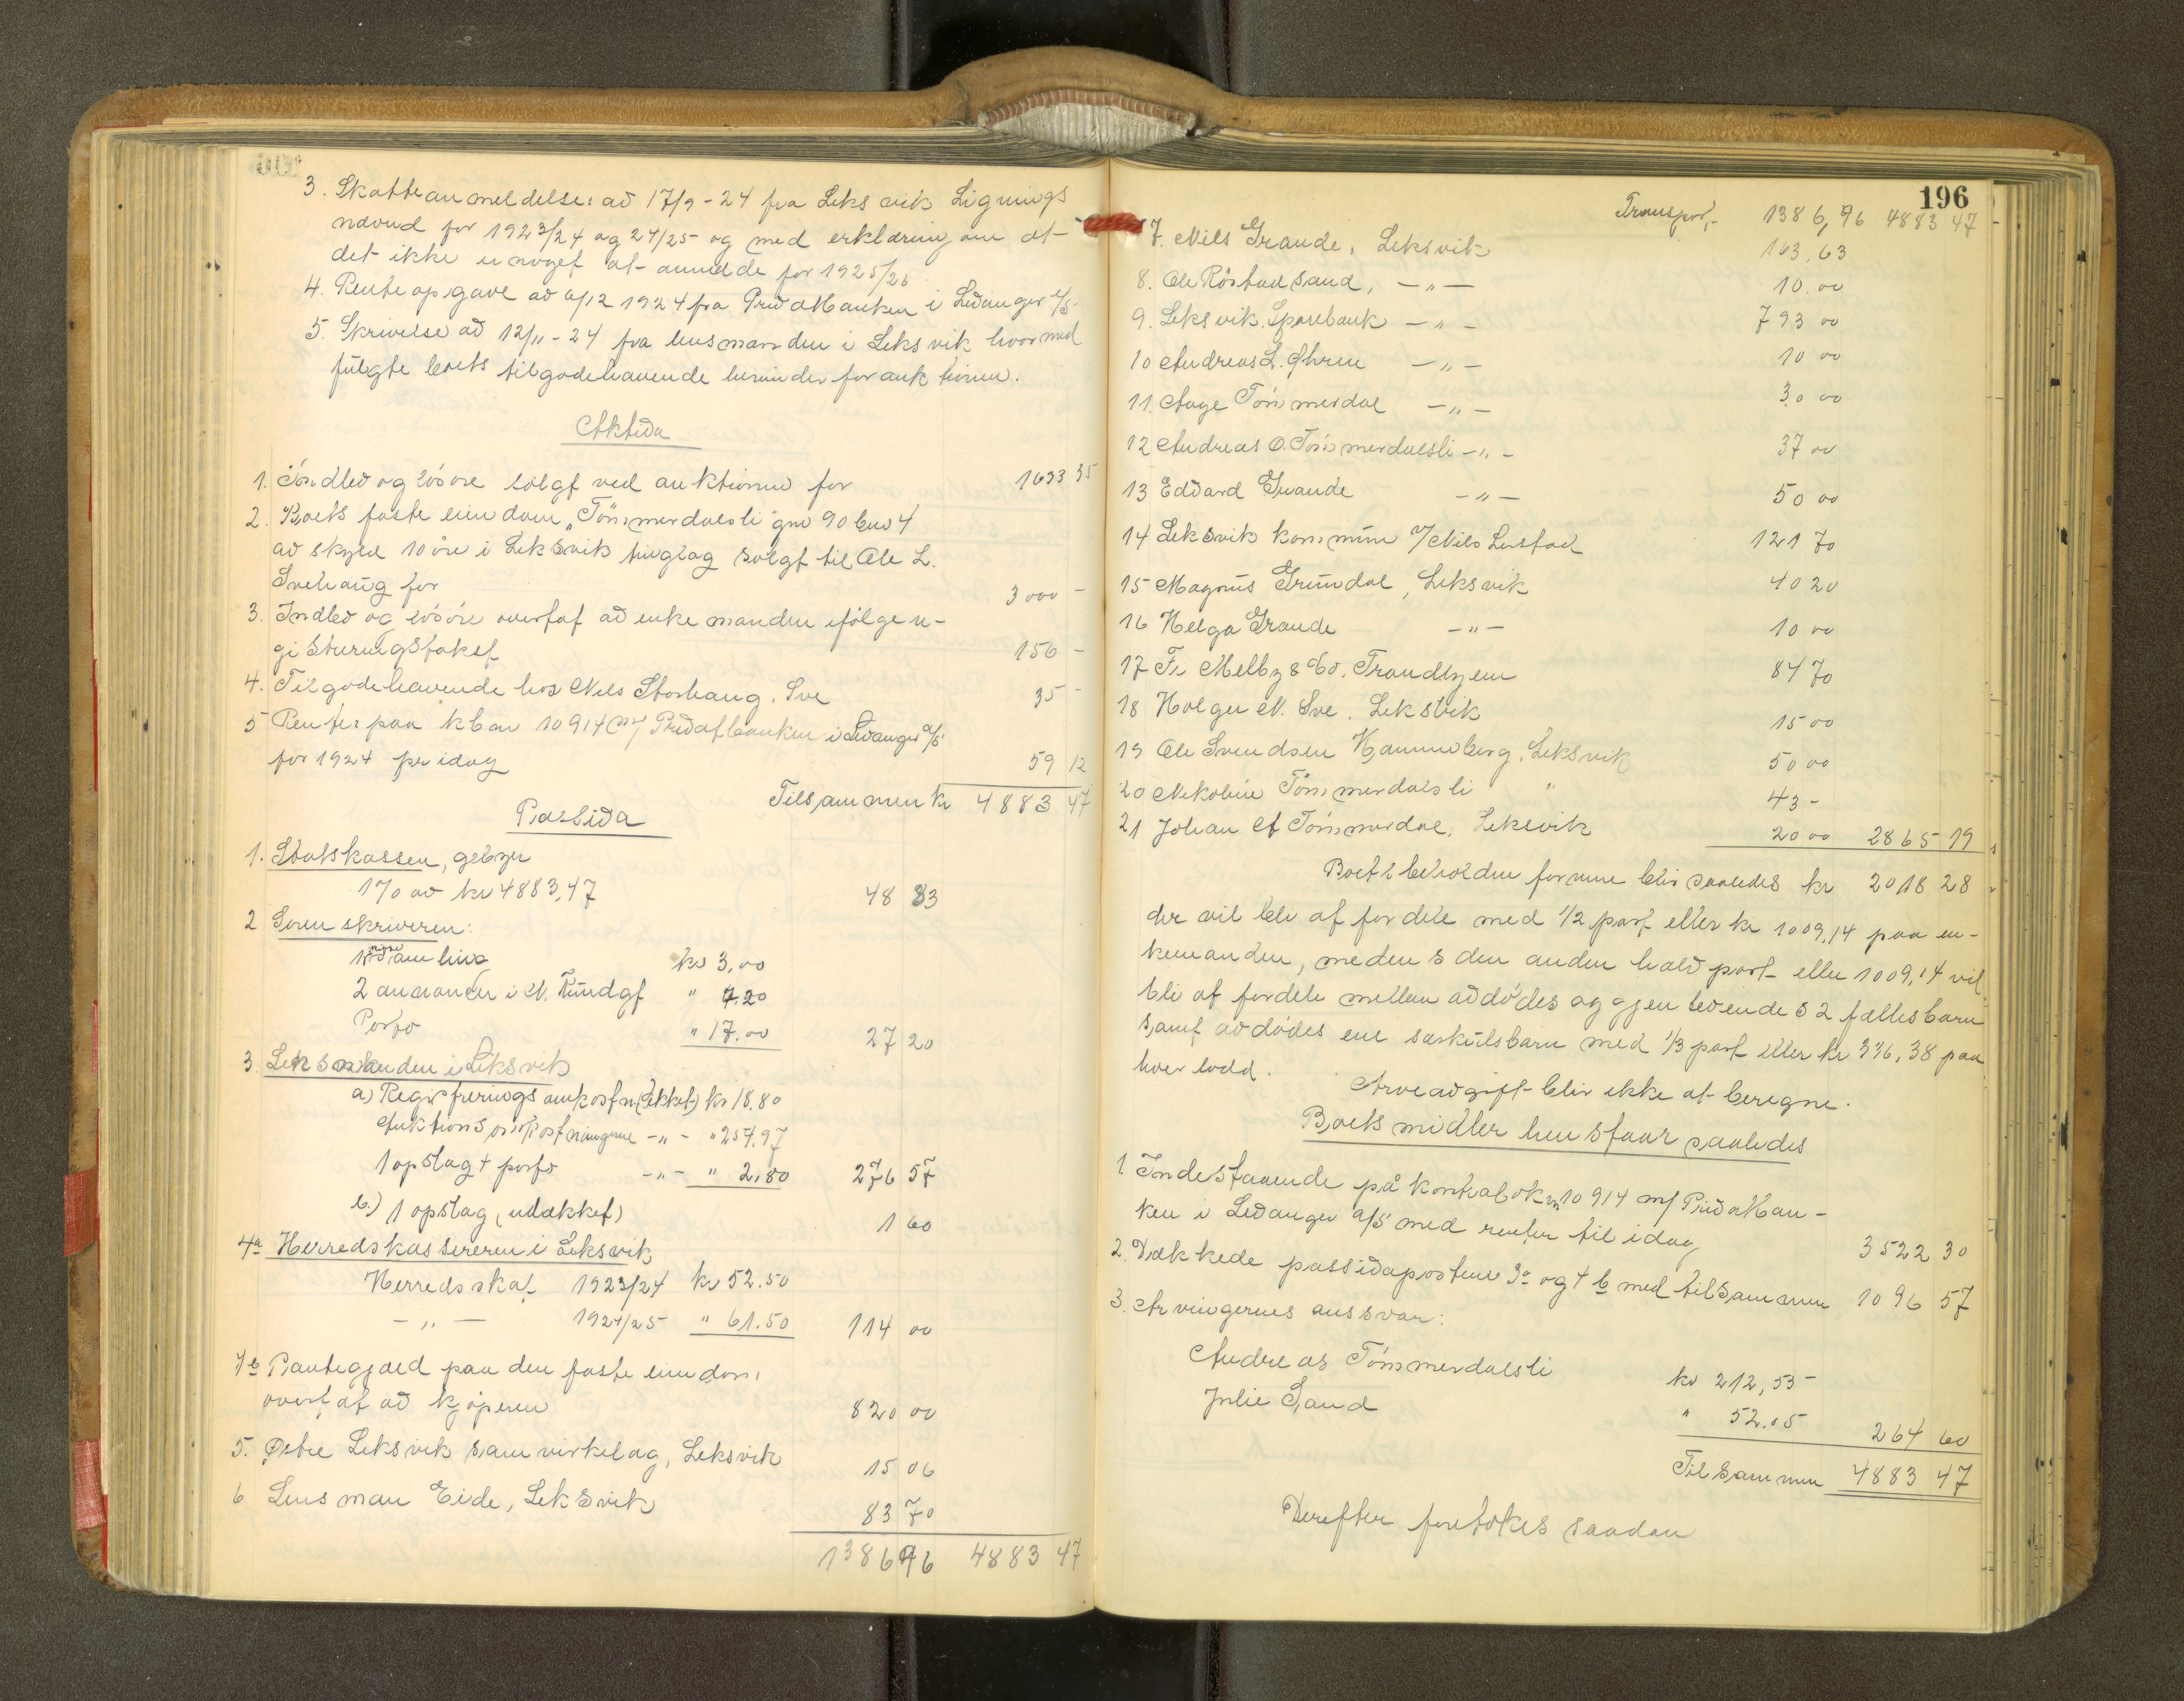 3. Skatteanmeldelser av 17/9-24 fra Leksvik Lignings
nævnd for 1923/24 og 24/25 og med erklæring om at
det ikke er noget at anmelde for 1925/26
4. Renteopgave av 6/12 1924 fra Privatbanken i Levanger A/S
5. Skrivelse av 12/11-24 fra lensmanden i Leksvik hvormed
fulgte boets tilgodehavende herunder for auktionen.
Aktiva
1. Indbo og løsøre solgt ved auktionen for 1633 35
2. Boets faste eiendom "Tömmerdalsli" gno 90 bno 4
av skyld 10 øre i Leksvik tinglag solgt til Ole L.
Svehaug for 3000 -
3. Indbo og løsøre overtat av enkemanden ifølge re-
gistreringstakst 156 -
4. Tilgodehavende hos Nils Storhaug, Sve 35 -
5 Renter paa kbon 10914 m/ Privatbanken i Levanger A/S
for 1924 pr idag 59 12
Tilsammen kr 4883 47
Passiva
1. Statskassen, gebyr
1% av kr 4883,47 48 83
2 Sorenskriveren:
1 samling kr 3,00
2 annoncer i N. Kundgj " 7.20
Porto " 17.00 27 20
3. Lensmanden i Leksvik
a) Registreringsomkostn (dækket) kr 18.80
Auktionsomkostningerne -"- " 254.97
1 opslag + porto -"- " 2,80 276 57
b.) 1 opslag (udækket) 1 60
4a Herredskassereren i Leksvik
Herredsskat 1923/24 kr 52.50
-"- 1924/25 " 61.50 114 00
4b Pantegjæld paa den faste eiendom,
overtat av kjøperen 820 00
5. Østre Leksvik samvirkelag, Leksvik 15 06
6 Lensman Eide, Leksvik 83 70
1386 96 4883 47
196
Transport 1386,96 4883 47
7. Nils Grande, Leksvik 163,63
8. Ole Röstad sand, -"- 10.00
9. Leksvik Sparebank -"- 793 00
10 Andreas L. Øhren -"- 10 00
11. Aage Tömmerdal -"- 30 00
12 Andreas O. Tömmerdalsli -"- 37 00
13 Edvard Grande -"- 50 00
14 Leksvik kommune v/ Nils 121 70
15 Magnus Gründal, Leksvik 40 20
16 Helga Grande -"- 10 00
17 Fr Melby & Co. Trondhjem 84 70
18 Holger N. Sve, Leksvik 15 00
19 Ole Svendsen Hammerberg, Leksvik 50 00
20 Nikoline Tömmerdalsli " 43 -
21 Johan A Tömmerdal, Leksvik 20 00 2865 19
Boets beholdne formue blir saaledes kr 2018 28
der vil bli at fordele med 1/2 part eller kr 1009,14 paa en-
kemanden, medens den anden halvpart eller 1009,14 vil
bli at fordele mellem avdødes og gjenlevendes 2 fællesbarn
samt avdødes ene særkulsbarn med 1/3 part eller kr 336,38 paa
hver lodd.
Arveavgift blir ikke at beregne.
Boets midler henstaar saaledes
1 Indestaaende på kontrabok no 10914 m/ Privatban-
ken i Levanger A/S med renter til idag 3522 30
2. Dækkede passivaposter 3a og 4b med tilsammen 1096 57
3. Arvingernes ansvar:
Andreas Tömmerdalsli kr 212,55
Julie Sand " 52.05 264 60
Tilsammen 4883 47
Derefter foretokes saadan